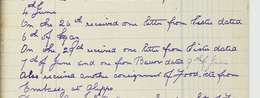 4th June
On the 26th received one letter from Lista dated
6th of May
On the 29th received one letter from Lista dated
7th of June and one from Bawor dated 9th of June
Also received another consignment of Food, etc from
Embassy at Aleppo